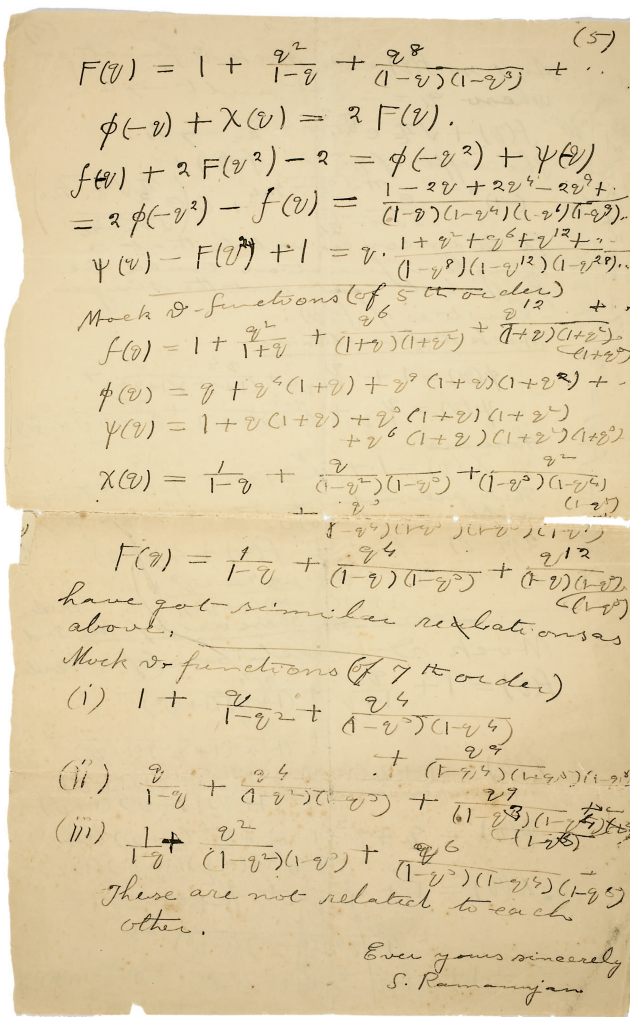 (5)
F(q) = 1 + q²/(1-q) + q⁸/((1-q)(1-q³)) + ..
φ(-q) + χ(q) = 2 F(q).
f(q) + 2 F(q²) - 2 = φ(-q²) + ψ(q)
= 2 φ(-q²) - f(q) = (1 - 2q + 2q⁴ - 2q⁹ + ..)/((1-q)(1-q⁴)(1-q⁶)(1-q⁹)..
ψ(q) - F(q²) + 1 = q. (1 + q² + q⁶ + q¹² + ..)/((1-q⁸)(1-q¹²)(1-q²⁸)..
Mock ϑ-functions (of 5th order)
f(q) = 1 + q²/(1+q) + q⁶/((1+q)(1+q²)) + q¹²/((1+q)(1+q²)(1+q³)) + ..
φ(q) = q + q⁴(1+q) + q⁹(1+q)(1+q²) + ..
ψ(q) = 1 + q(1+q) + q³(1+q)(1+q²)
+ q⁶(1+q)(1+q²)(1+q³)
χ(q) = 1/(1-q) + q/((1-q²)(1-q³)) + q²/((1-q³)(1-q⁴)(1-q⁵))
+ q³/((1-q⁴)(1-q⁵)(1-q⁶)(1-q⁷))
F(q) = 1/(1-q) + q⁴/((1-q)(1-q³)) + q¹²/((1-q)(1-q³)(1-q⁵))
have got similar relations as
above.
Mock ϑ-functions (of 7th order)
(i) 1 + q/(1-q²) + q⁴/((1-q³)(1-q⁴))
+ q⁹/((1-q⁴)(1-q⁵)(1-q⁶))
(ii) q/(1-q) + q⁴/((1-q²)(1-q³)) + q⁹/((1-q³)(1-q⁴)(1-q⁵)) + ..
(iii) 1/(1-q) + q²/((1-q²)(1-q³)) + q⁶/((1-q³)(1-q⁴)(1-q⁵)) +
These are not related to each
other.
Ever yours sincerely
S. Ramanujan